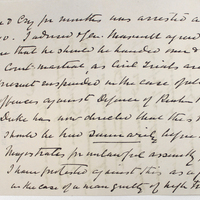 months was arrested a
o. I advised Gen Maxwell
that he should be handed over
Court martial, as Civil Trials are
present suspended in the case of
offences against Defence of Realm
Duke has now directed that the
should be tried summarily before
Magistrates for unlawful assembly
I have protested against this as a
in the case of a man guilty of high